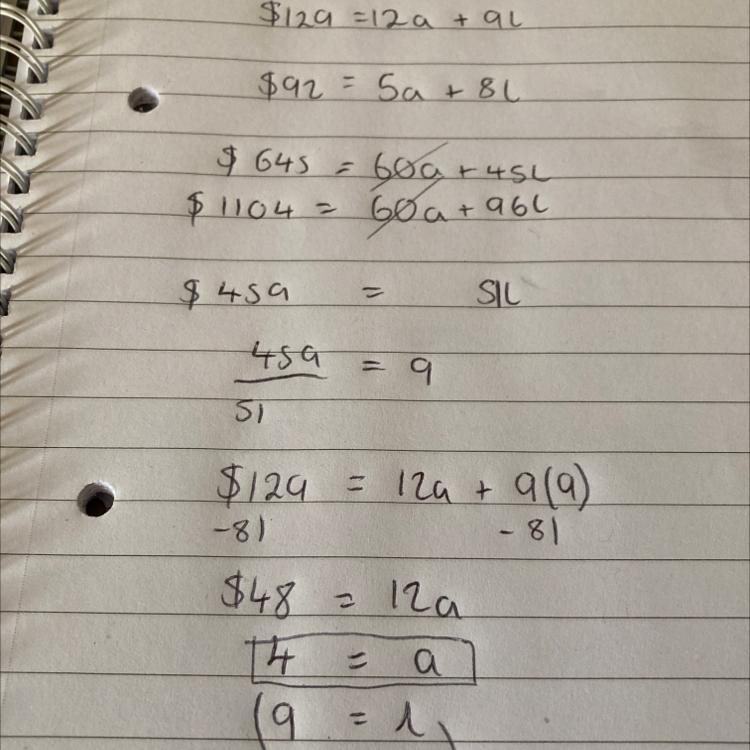 $129 = 12a + 9l
$92 = 5a + 8l
$645 = 60a + 45l
$1104 = 60a + 96l
$459 = 51l
459
51
= 9
$129 = 12a + 9(9)
-81 -81
$48 = 12a
4 = a
(9 = l)